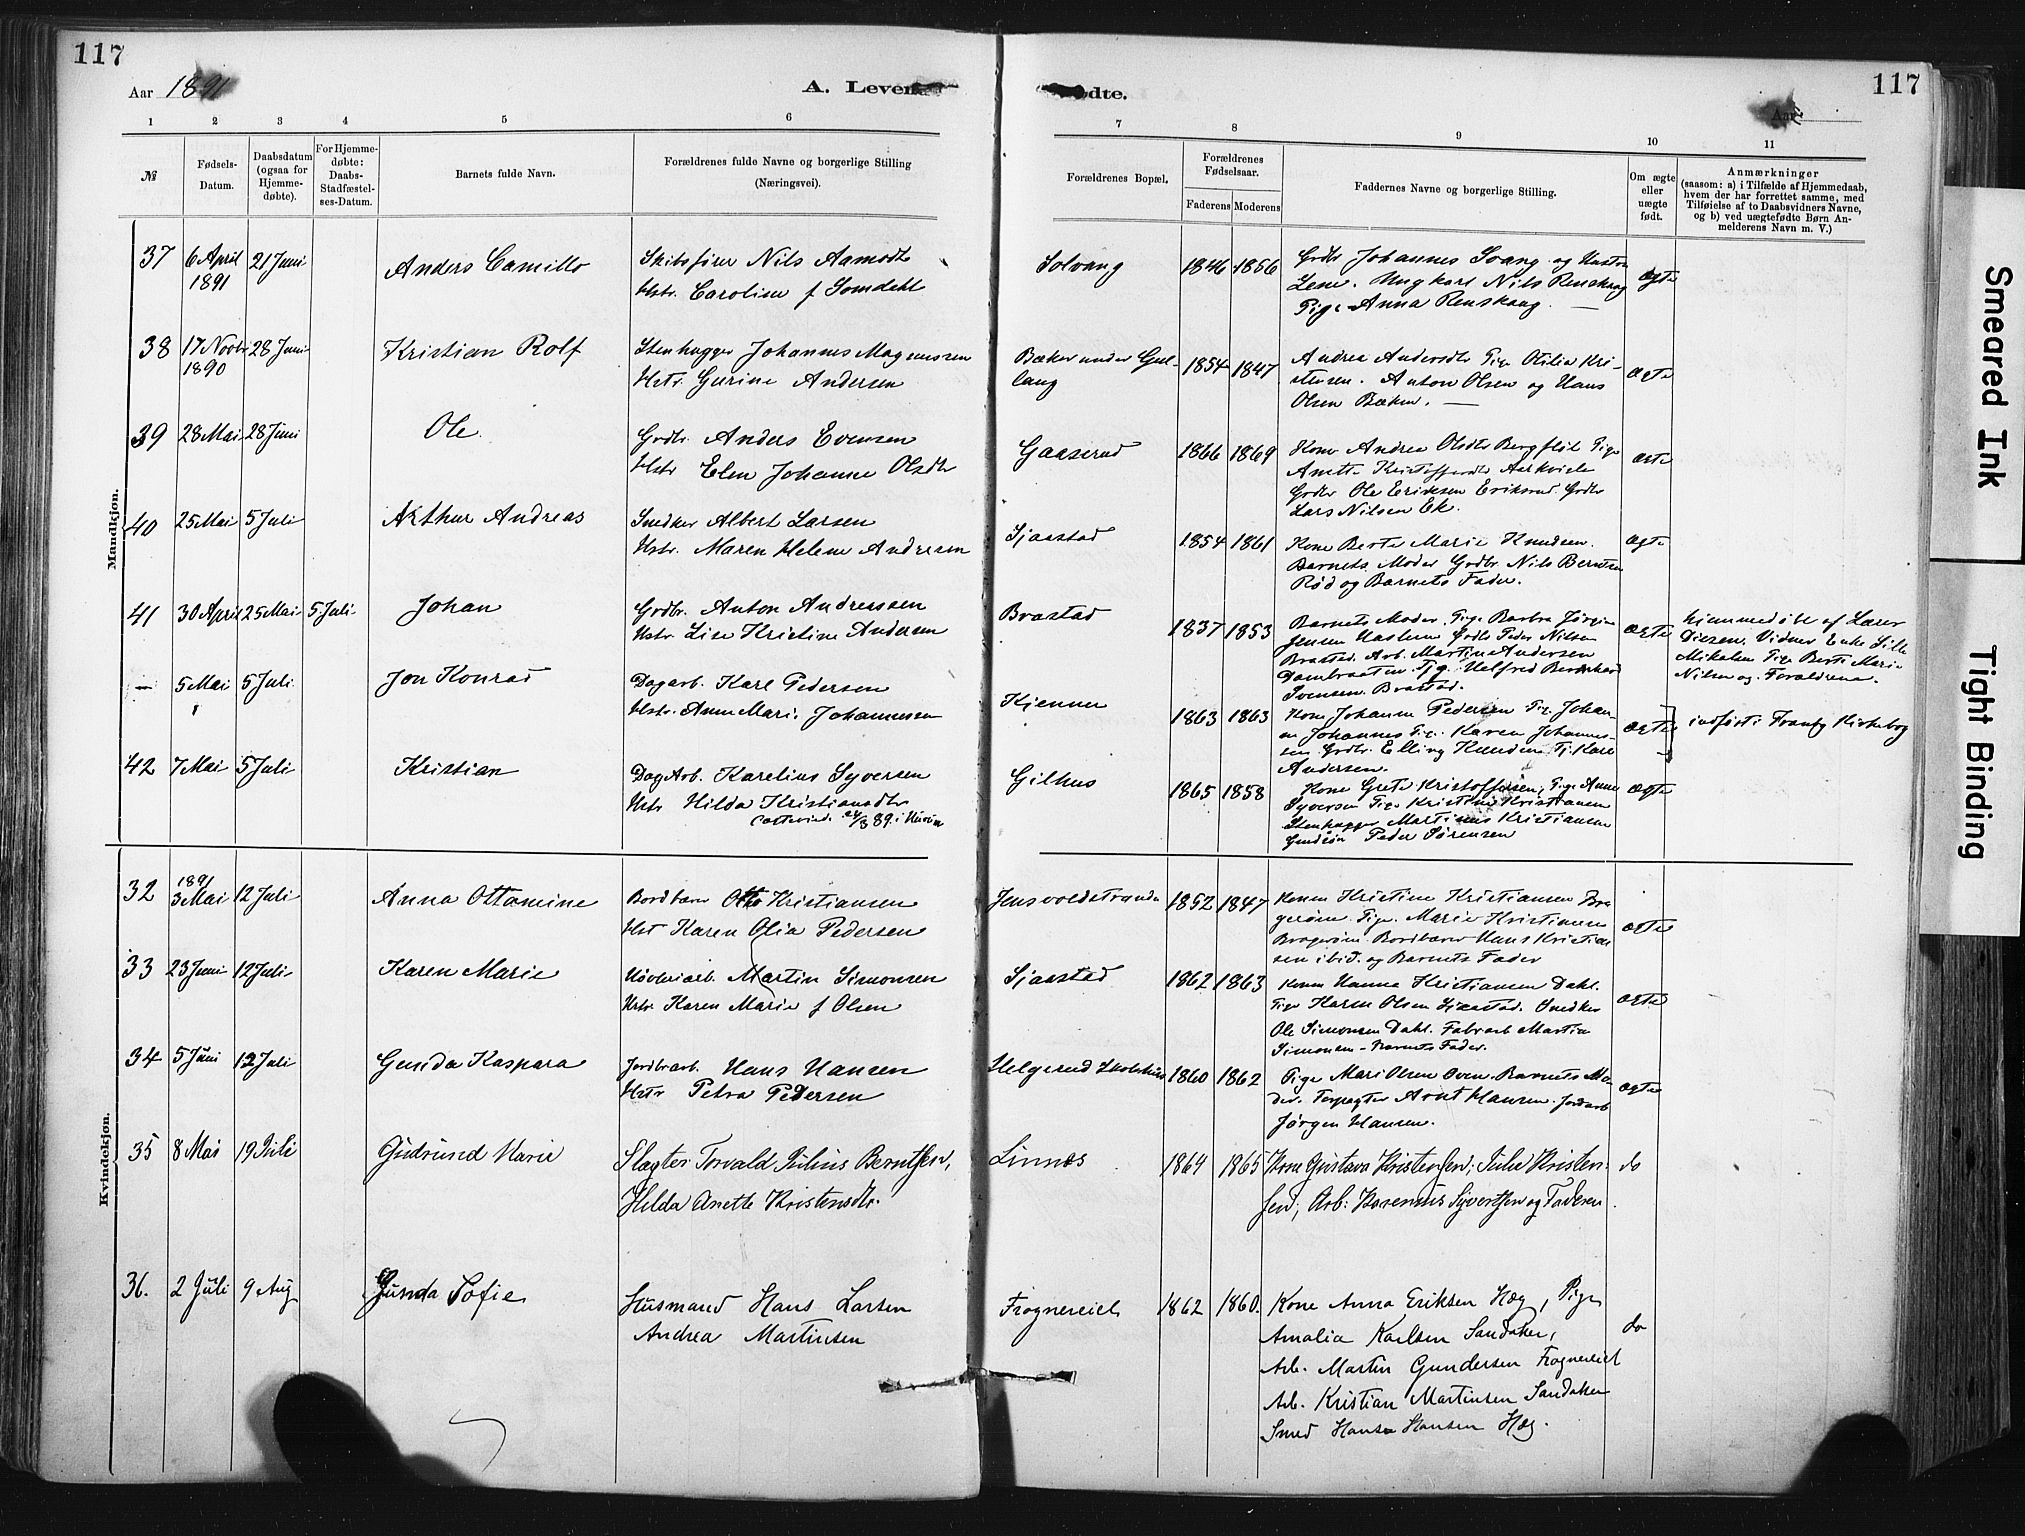 117
117
Aar 1891
A. Levende
Fødte.
Aar
1 2 3 4 5 6 7 8 9 10 11
№
Fødsels-
Datum.
Daabsdatum
(ogsaa for
Hjemme-
døbte).
For Hjemme-
døbte:
Daabs-
Stadfæstel-
ses-Datum.
Barnets fulde Navn.
Forældrenes fulde Navne og borgerlige Stilling
(Næringsvei).
Forældrenes Bopæl.
Forældrenes
Fødselsaar.
Faderens Moderens
Faddernes Navne og borgerlige Stilling.
Om ægte
eller
uægte
født.
Anmærkninger
(saasom: a) i Tilfælde af Hjemmedaab,
hvem der har forrettet samme, med
Tilføielse af to Daabsvidners Navne,
og b) ved uægtefødte Børn An-
melderens Navn m. V.)
Mandkjøn.
37 6 April 21 Juni
1891
Anders Camillo
Skibsfører Nils Aamodt
Hstr. Caroline f Somdahl
Solvang
1846 1856
Grdbr Johannes Svang og Hustru
Lene. Ungkarl Nils Renskaug
Pige Anna Renskaug. —
ægte
38 17 Novbr 28 Juni
1890
Kristian Rolf
Stenhugger Johannes Magnussen
Hstr. Gurine Andersen
Bæker under Gul-
laug
1854 1847
Andrea Andersdtr Pige Otilia Kri-
stensen. Anton Olsen og Hans
Olsen Bæken. —
ægte
39 28 Mai 28 Juni
Ole
Grdbr. Anders Evensen
Hstr Elen Johanne Olsdtr
Gaaserud
1866 1869
Kone Andrea Olsdtr Bergflöt Pige
Anette Kristoffersdtr Aarkvisle
Grdbr Ole Eriksen Eriksrud Grdbr
Lars Nilsen Ek.
ægte
40 25 Mai 5 Juli
Arthur Andreas
Snedker Albert Larsen
Hstr. Maren Helene Andresen
Sjaastad
1854 1861
Kone Berte Marie Knudsen.
Barnets Moder Grdbr. Nils Berntsen
Rød og Barnets Fader.
ægte
41 30 April 25 Mai 5 Juli
Johan
Grdbr. Anton Andreassen
Hstr Lise Kristine Andersen
Brastad
1837 1853
Barnets Moder. Pige Barbra Jørgine
Jensen Grdbr Peder Nilsen
Brastad. Arb. Martin Andersen
Dambraaten. Tjg. Helfred Bernhard
Svensen. Brastad.
ægte
hjemmedøbt af Lærer
Diesen. Vidner Enke Sille
Mikalsen Pige Berte Marie
Nilsen og Forældrene.
— 5 Mai 5 Juli
Jon Konrad
Dagarb. Karl Pedersen
Hstr. Anne Marie Johannesen
Kjenner
1863 1863
Kone Johanne Pedersen Pige Johan-
ne Johannes Pige Karen Johannes-
sen Grdbr. Elling Knudsen Tj. Karl
Andersen.
ægte
indført i Tranby Kirkebog
42 7 Mai 5 Juli
Kristian
DagArb. Karelius Syversen
Hstr Hilda Kristiansdtr
Gilhus
1865 1858
Kone Grete Kristoffersen, Pige Anne
Syversen Pige Kristine Kristiansen
Stenhugger Martinius Kristiansen
Peder Sørensen
ægte
Kvindekjøn.
1891
32 3 Mai 12 Juli
Anna Ottomine
Bordbærer Otto Kristiansen
Hst Karen Olia Pedersen
Jensvoldstranden
1852 1847
Konen Kristine Kristiansen Bra
gerøen. Pige Marie Kristiansen
Bragerøen. Bordbærer Hans Kristian
sen ibid. og Barnets Fader
ægte
33 23 Juni 12 Juli
Karen Marie
Høvleriarb. Martin Simonsen
Hstr. Karen Marie f Olsen
Sjaastad
1862 1863
Konen Hanna Kristiansen Dahl.
Pige Karen Olsen Sjaastad. Snedker
Ole Simonsen Dahl. Fabrarb Martin
Simonsen – Barnets Fader.
ægte
34 5 Juni 12 Juli
Gunda Kaspara
Jordbrarb. Hans Hansen
Hstr Petra Pedersen
Helgerud Skolehus
1860 1862
Pige Mari Olsen Oven. Barnets Mo
der. Forpagter Arnt Hansen. Jordarb
Jørgen Hansen.
ægte
35 8 Mai 19 Juli
Gudrund Marie
Slagter Torvald Julius Berntsen,
Hilda Anette Kristensdtr.
Linnes
1864 1865
Kone Gustava Kristensen, Julie Kristen-
sen, Arb: Karenius Syvertsen og Faderen.
do
36. 2 Juli 9 Aug
Gunda Sofie
Husmand Hans Larsen
Andrea Martinsen
Frognereiet
1862 1860.
Kone Anna Eriksen Hæg, Pige
Amalia Karlsen Sandaker,
Arb. Martin Gundersen Frognereiet
Arb. Kristian Martinsen Sandaker
Smed Hans Hansen Hæg.
do
Smeared Ink
Tight Binding